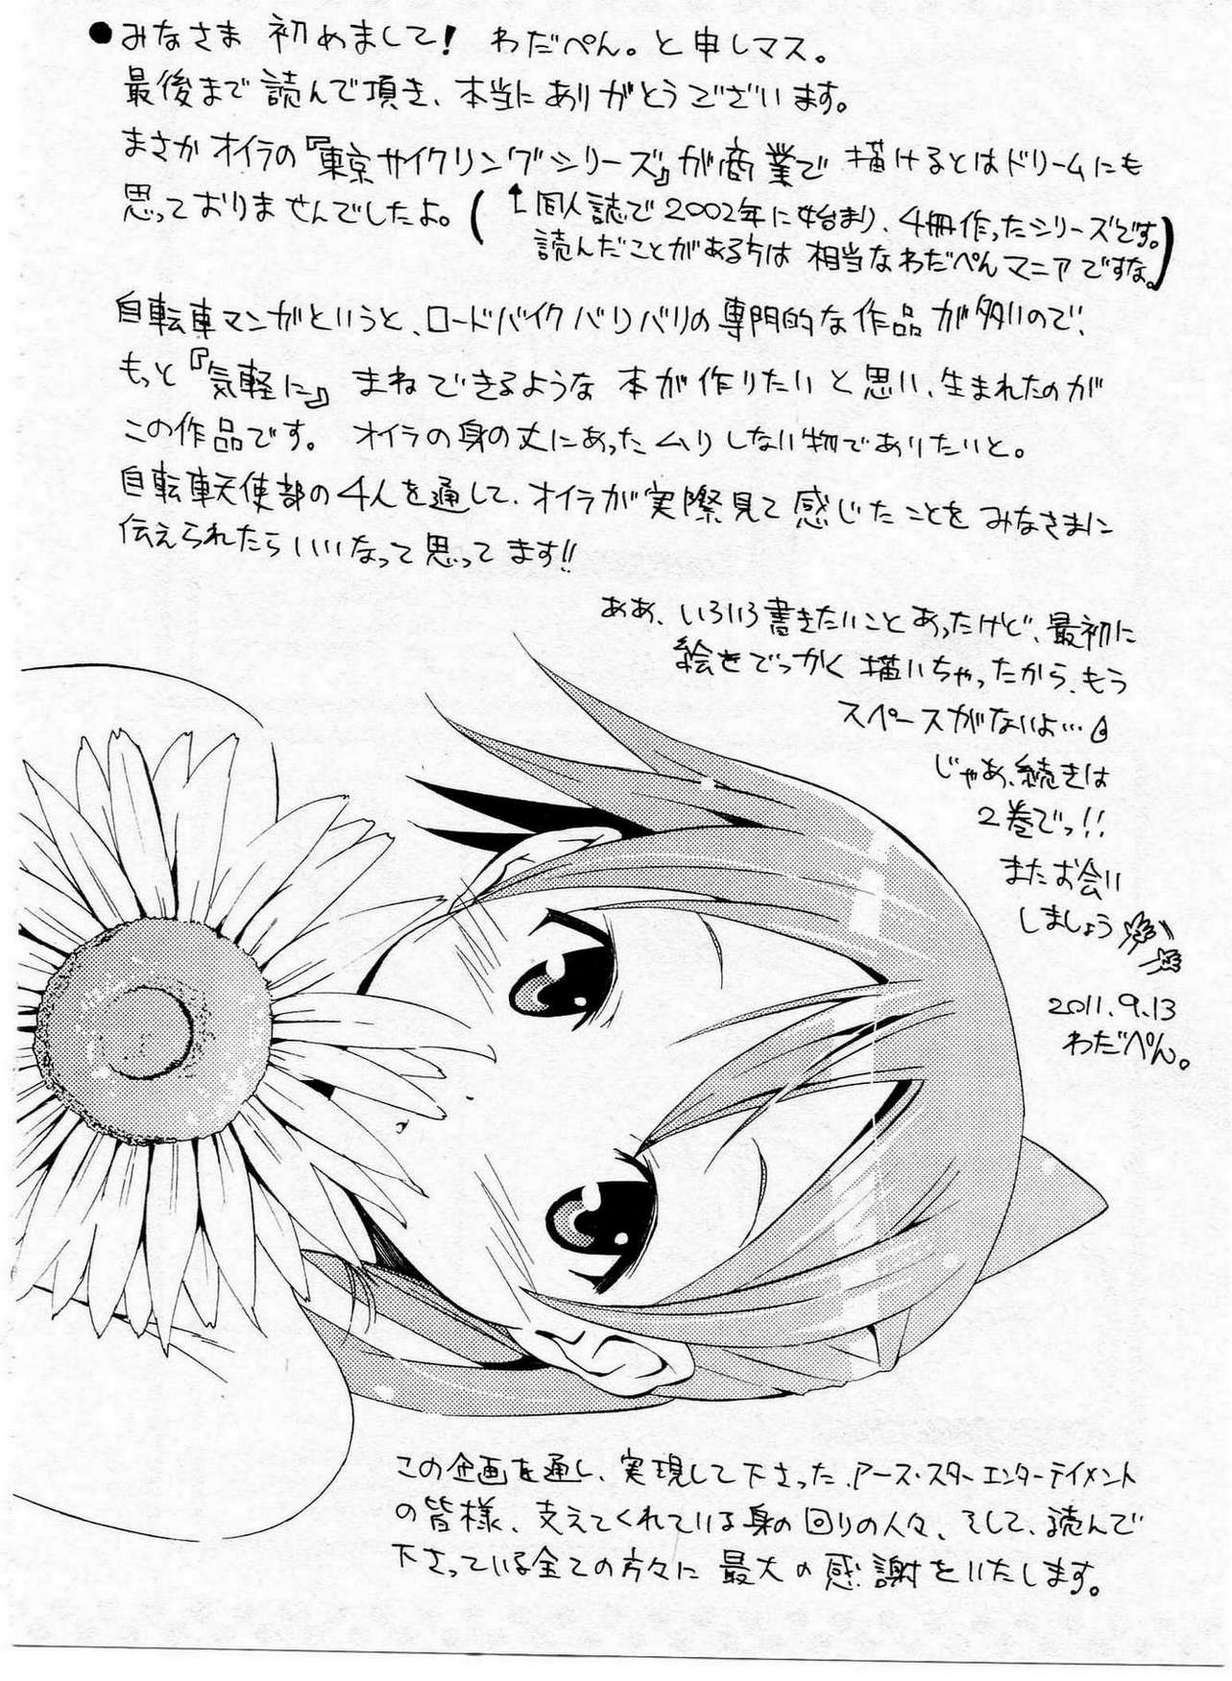 ●みなさま 初めまして! わだぺん。と申しマス。
最後まで読んで頂き、本当にありがとうございます。
まさかオイラの『東京サイクリングシリーズ』が商業で 描けるとはドリームにも
思っておりませんでしたよ。(↑同人誌で2002年に始まり、4冊作ったシリーズです。
読んだことがある方は 相当なわだぺんマニアですな。)
自転車マンガというと、ロードバイクバリバリの専門的な作品が多いので、
もっと『気軽に』まねできるような 本が作りたいと思い、生まれたのが
この作品です。 オイラの身の丈にあったムリしない物でありたいと。
自転車天使部の4人を通して、オイラが実際見て感じたことをみなさまに
伝えられたらいいなって思ってます!!
ああ、いろいろ書きたいことあったけど、最初に
絵をでっかく描いちゃったから、もう
スペースがないよ…
じゃあ、続きは
2巻でっ!!
またお会い
しましょう
2011.9.13
わだぺん。
この企画を通し、実現して下さった、アース・スターエンターテイメント
の皆様、支えてくれている身の回りの人々、そして、読んで
下さっている全ての方々に 最大の感謝をいたします。